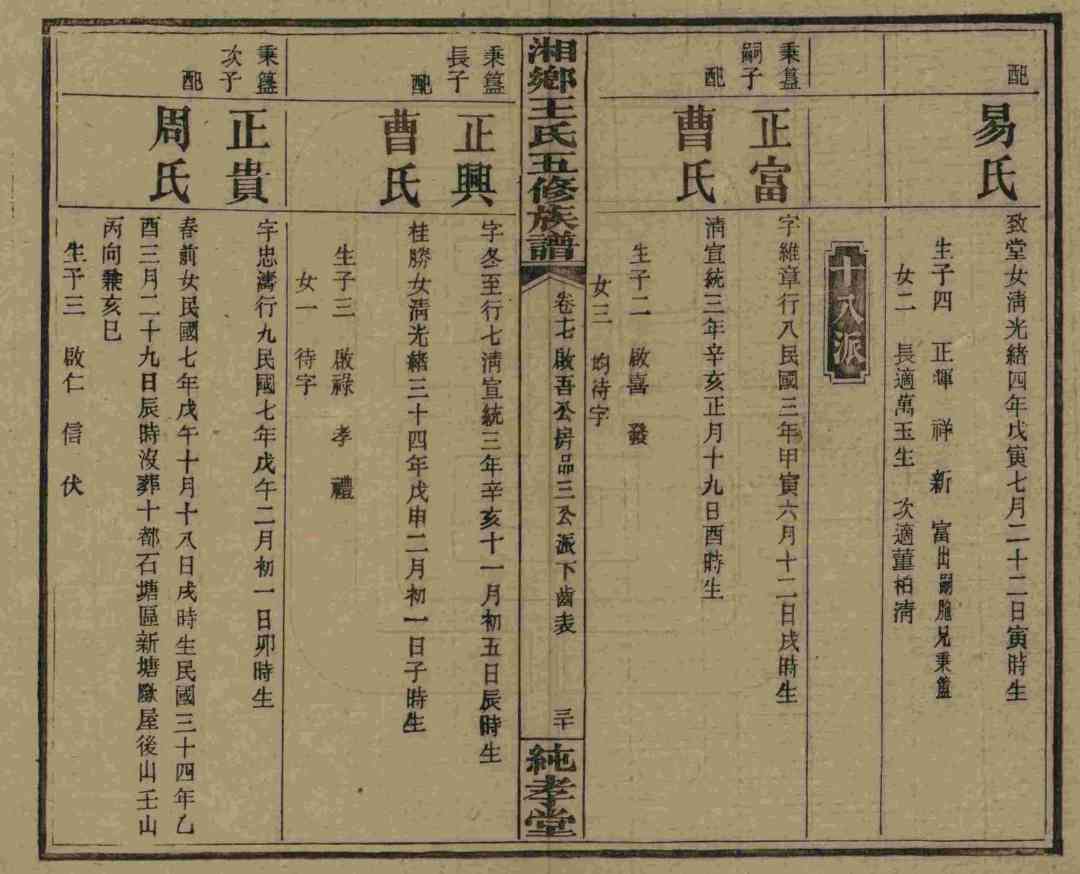 配
易氏
致堂女淸光緒四年戊寅七月二十二日寅時生
生子四　正暉　祥　新　富出嗣胞兄秉簋
女二　長適萬玉生　次適董柏淸
十八派
秉簋
嗣子
正富
字維章行八民國三年甲寅六月十二日戌時生
配
曹氏
淸宣統三年辛亥正月十九日酉時生
生子二　啟喜　發
女三　均待字
湘鄉王氏五修族譜
卷十七啟吾公房品三公派下齒表
三十
純孝堂
秉簋
長子
正興
字冬至行七淸宣統三年辛亥十一月初五日辰時生
配
曹氏
桂勝女淸光緒三十四年戊申二月初一日子時生
生子三　啟祿　孝　禮
女一　待字
秉簋
次子
正貴
字忠濤行九民國七年戊午二月初一日卯時生
配
周氏
春前女民國七年戊午十月十八日戌時生民國三十四年乙
酉三月二十九日辰時沒葬十都石塘區新塘屋後山壬山
丙向兼亥巳
生子三　啟仁　信　伏